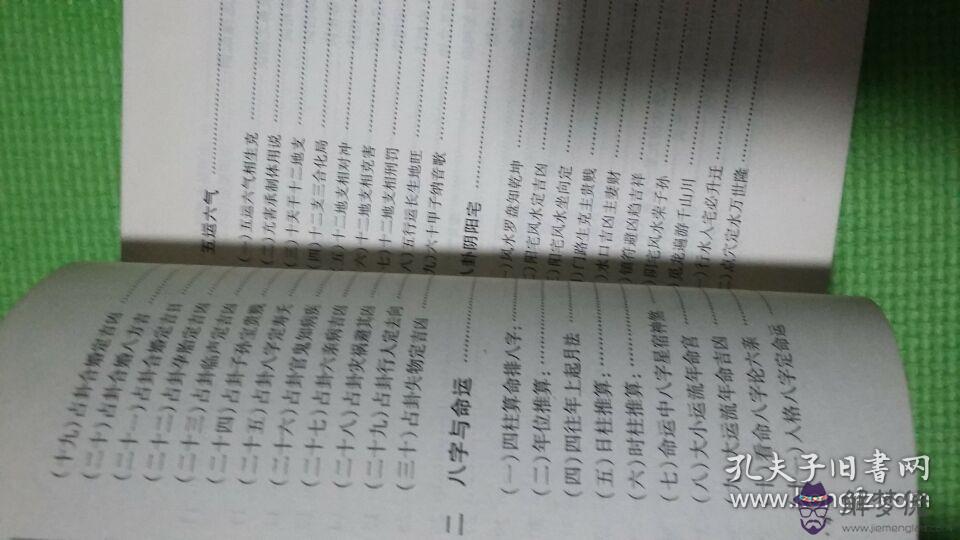 (十九)占卦合婚定吉凶
(二十)占卦合婚八方吉
(二十一)占卦合婚定吉日
(二十二)占卦孕胎定吉凶
(二十三)占卦临产定吉凶
(二十四)占卦子孙定贵贱
(二十五)占卦八字定寿夭
(二十六)占卦官鬼知病疾
(二十七)占卦六亲病吉凶
(二十八)占卦灾祸避其凶
(二十九)占卦行人定去向
(三十)占卦失物定吉凶
二 八字与命运
(一)四柱算命排八字:
(二)年位推算:
(四)四往年上起月法
(五)日柱推算:
(六)时柱推算:
(七)命运中八字星宿神煞
(八)大小运流年命宫
(九)大运流年命吉凶
(十)看命八字论六亲
一)人格八字定命运
五运六气
(一)五运六气相生克
(二)亢害承制体用说
(三)十天干十二地支
(四)十二支三合化局
(五)十二地支相对冲
六)十二地支相克害
七)十二地支相刑罚
八)五行运长生地旺
九)六十甲子纳音歌
八卦阴阳宅
一)风水罗盘知乾坤
阳宅风水定吉凶
阳宅风水坐向定
门路生克主贵贱
水口吉凶主妻财
镇符避凶趋吉祥
阴宅风水荣子孙
觅龙遍游千山川
一)行水入宅必升迁
二)点穴定水万世隆
孔夫子旧書网
解梦佬
www.jiemenglao